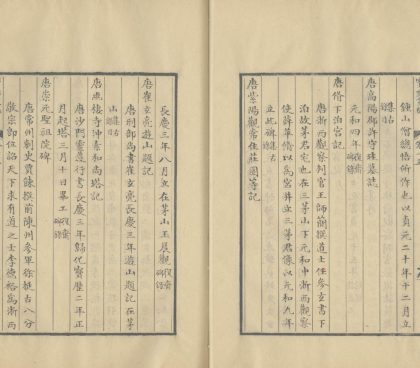 鍾山僧德悟所作也以貞元二十年十二月立
集古
唐高陽郡許守珪墓誌
元和四年復齋碑錄
唐脩下泊宮記
唐浙西觀察判官王師簡撰道士任參玄書下
泊故茅君宅也在三茅山下元和中浙西觀察
使薛苹修以為宮并立三茅君像以元和九年
立此碑集古
唐紫陽觀常住莊園等記
長慶三年八月立在茅山玉晨觀復齋碑錄
唐崔玄亮遊山題記
唐刑部尚書崔玄亮長慶三年遊山題記在茅
山集古
唐栖棲寺沖素和尚塔記
唐沙門靈遵行書長慶三年歸代寶曆二年正
月起塔三月十日畢工復齋碑錄
唐崇元聖祖院碑
唐常州刺史賈餗撰前陳州參軍徐挺古八分
敬宗即位詔天下求有道之士李德裕為浙西